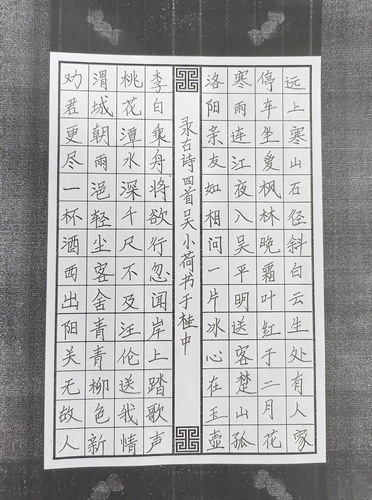 远上寒山石径斜白云生处有人家
停车坐爱枫林晚霜叶红于二月花
寒雨连江夜入吴平明送客楚山孤
洛阳亲友如相问一片冰心在玉壶
录古诗四首吴小荷书于桂中
李白乘舟将欲行忽闻岸上踏歌声
桃花潭水深千尺不及汪伦送我情
渭城朝雨浥轻尘客舍青青柳色新
劝君更尽一杯酒西出阳关无故人